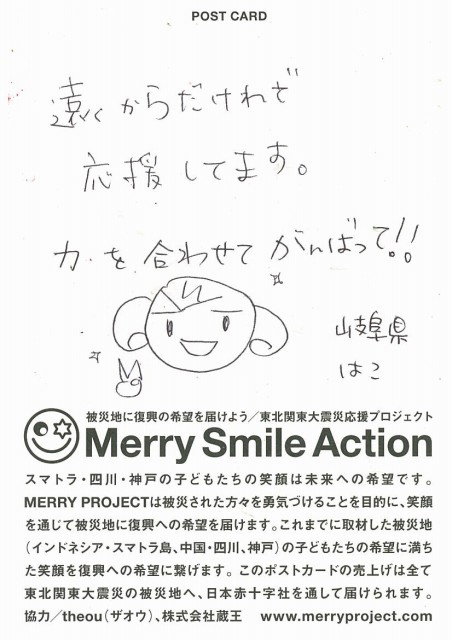 POST CARD
遠くからだけれど
応援してます。
力を合わせてがんばって!!
岐阜県
はこ
被災地に復興の希望を届けよう／東北関東大震災応援プロジェクト
Merry Smile Action
スマトラ・四川・神戸の子どもたちの笑顔は未来への希望です。
MERRY PROJECTは被災された方々を勇気づけることを目的に、笑顔
を通じて被災地に復興への希望を届けます。これまでに取材した被災地
（インドネシア・スマトラ島、中国・四川、神戸）の子どもたちの希望に満ち
た笑顔を復興への希望に繋げます。このポストカードの売上げは全て
東北関東大震災の被災地へ、日本赤十字社を通して届けられます。
協力／theou（ザオウ）、株式会社蔵王 www.merryproject.com